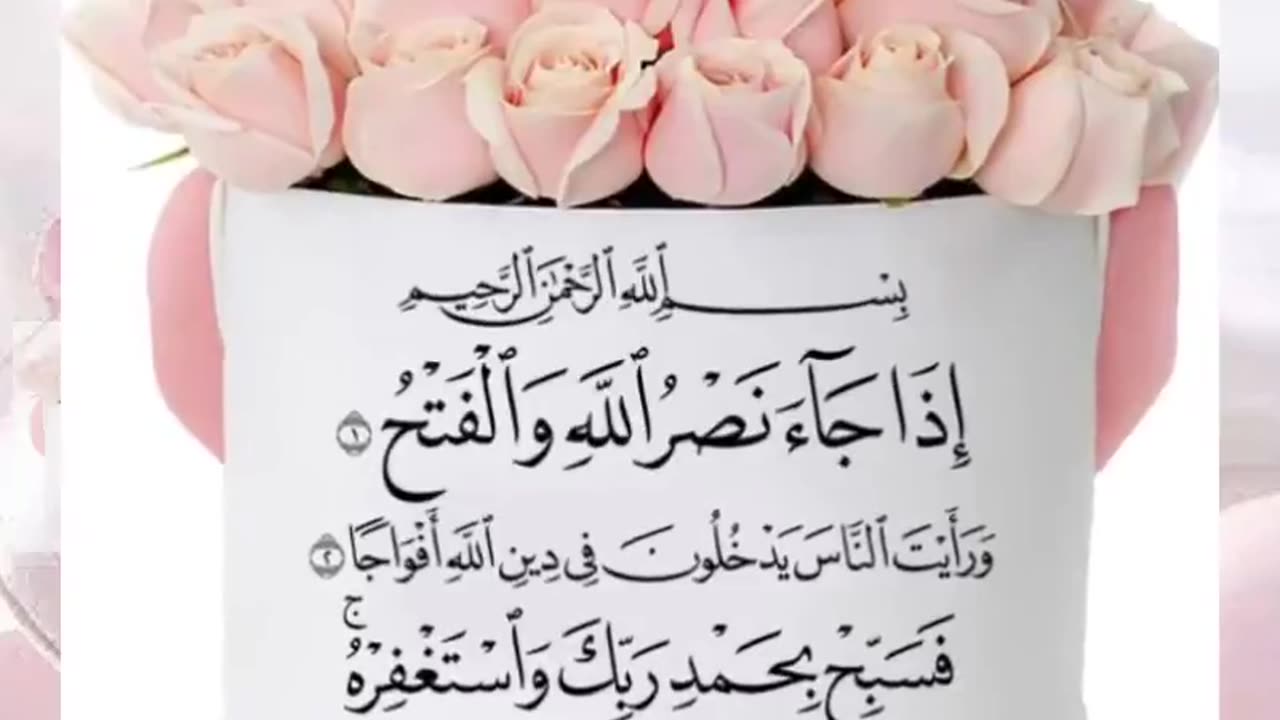 بِسْمِ ٱللَّهِ ٱلرَّحْمَٰنِ ٱلرَّحِيمِ
إِذَا جَآءَ نَصْرُ ٱللَّهِ وَٱلْفَتْحُ ١
وَرَأَيْتَ ٱلنَّاسَ يَدْخُلُونَ فِى دِينِ ٱللَّهِ أَفْوَاجًا ٢
فَسَبِّحْ بِحَمْدِ رَبِّكَ وَٱسْتَغْفِرْهُ ۚ